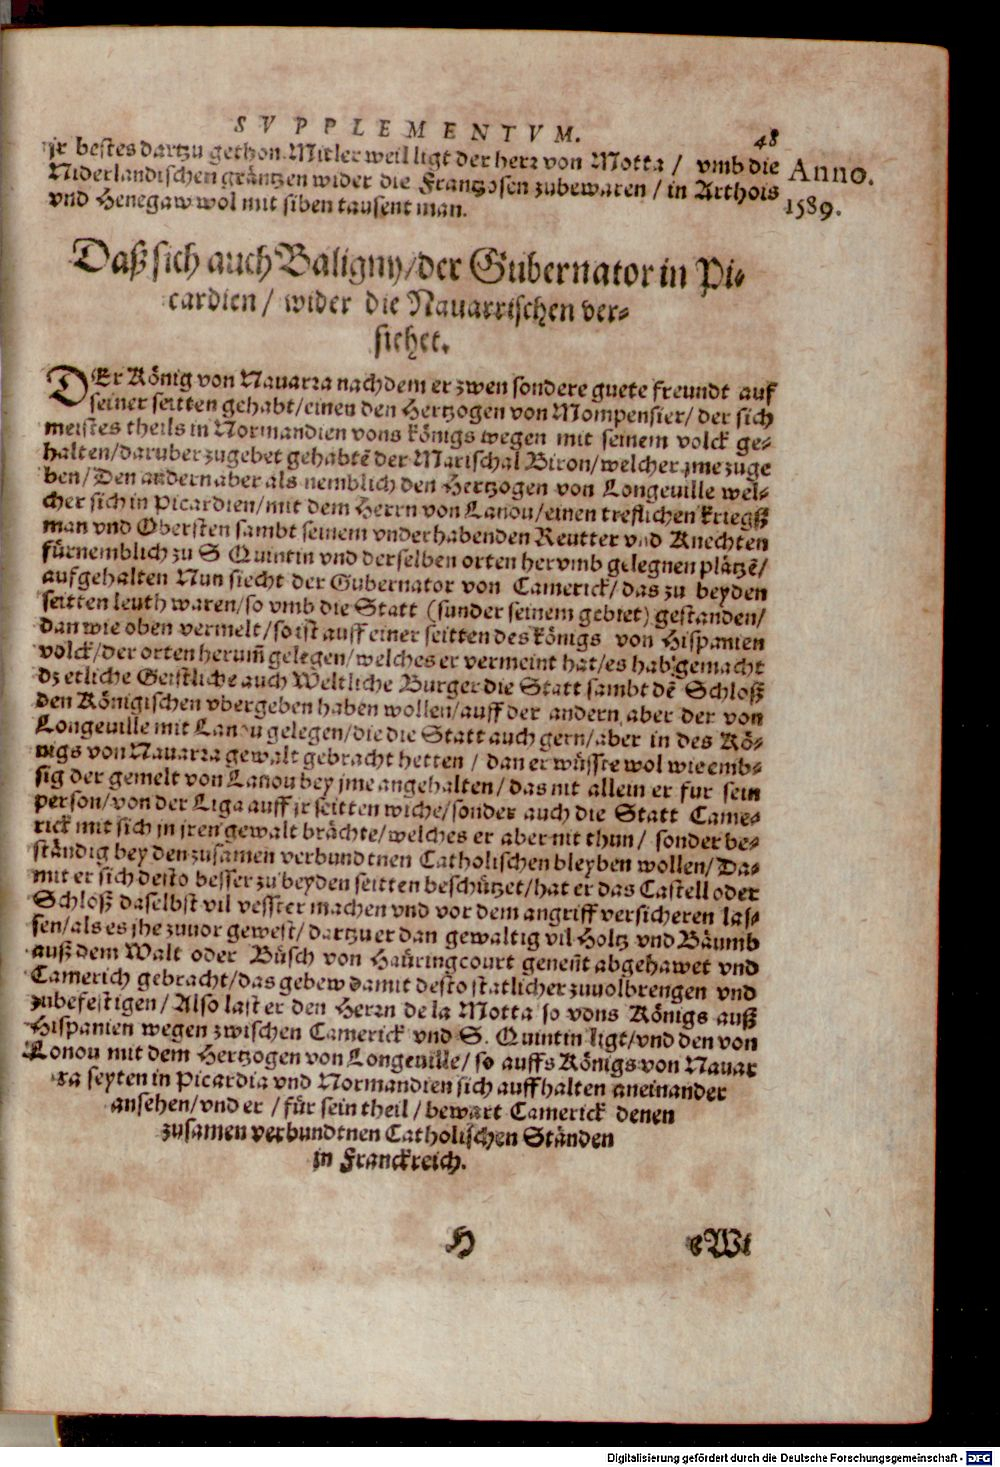 SVPPLEMENTVM.
48
jr bestes dartzu gethon. Mitler weil ligt der herr von Motta / vmb die
Niderlandischen gräntzen wider die Frantzosen zubewaren / in Arthois
vnd Henegaw wol mit siben tausent man.
Anno.
1589.
Daß sich auch Baligny / der Gubernator in Pi-
cardien / wider die Nauarrischen ver-
siehet.
DEr König von Nauarra nachdem er zwen sondere guete freundt auf
seiner seitten gehabt / einen den Hertzogen von Mompensier / der sich
meistes theils in Normandien vons königs wegen mit seinem volck ge-
halten / darüber zugebet gehabtē der Marischal Biron / welcher jme zuge
ben / Den andern aber als nemblich den Hertzogen von Longeville wel-
cher sich in Picardien / mit dem Herrn von Lanou / einen treflichen kriegß
man vnd Obersten sambt seinem vnderhabenden Reutter vnd Knechten
fürnemblich zu S Quintin vnd derselben orten hervmb gelegnen plätzē /
aufgehalten Nun siecht der Gubernator von Camerick / das zu beyden
seitten leuth waren / so vmb die Statt (sunder seinem gebiet) gestanden /
dan wie oben vermelt / so ist auff einer seitten des königs von Hispanien
volck / der orten herum̃ gelegen / welches er vermeint hat / es hab gemacht
dz etliche Geistliche auch Weltliche Burger die Statt sambt dē Schloß
den Königischen vbergeben haben wollen / auff der andern aber der von
Longeuille mit Lanou gelegen / die die Statt auch gern / aber in des Kö-
nigs von Nauarra gewalt gebracht hetten / dan er wüsste wol wie emb-
sig der gemelt von Lanou bey jme angehalten / das nit allein er fur sein
person / von der Liga auff jr seitten wiche / sonder auch die Statt Came-
rick mit sich in jren gewalt brächte / welches er aber nit thun / sonder be-
ständig bey den zusamen verbundtnen Catholischen bleyben wollen / Da-
mit er sich desto besser zu beyden seitten beschützet / hat er das Castell oder
Schloß daselbst vil vesster machen vnd vor dem angriff versicheren las-
sen / als es jhe zuuor gewest / dartzu er dan gewaltig vil Holtz vnd Bäumb
auß dem Walt oder Büsch von Haüringcourt geneñt abgehawet vnd
Camerich gebracht / das gebew damit desto statlicher zuuolbrengen vnd
zubefestigen / Also last er den Herrn de la Motta so vons Königs auß
Hispanien wegen zwischen Camerick vnd S. Quintin ligt / vnd den von
Lonou mit dem Hertzogen von Longeuille / so auffs Königs von Nauar
ra seyten in Picardia vnd Normandien sich auffhalten aneinander
ansehen / vnd er / für sein theil / bewart Camerick denen
zusamen verbundtnen Catholischen Ständen
in Franckreich.
H
eWi
Digitalisierung gefördert durch die Deutsche Forschungsgemeinschaft - DFG